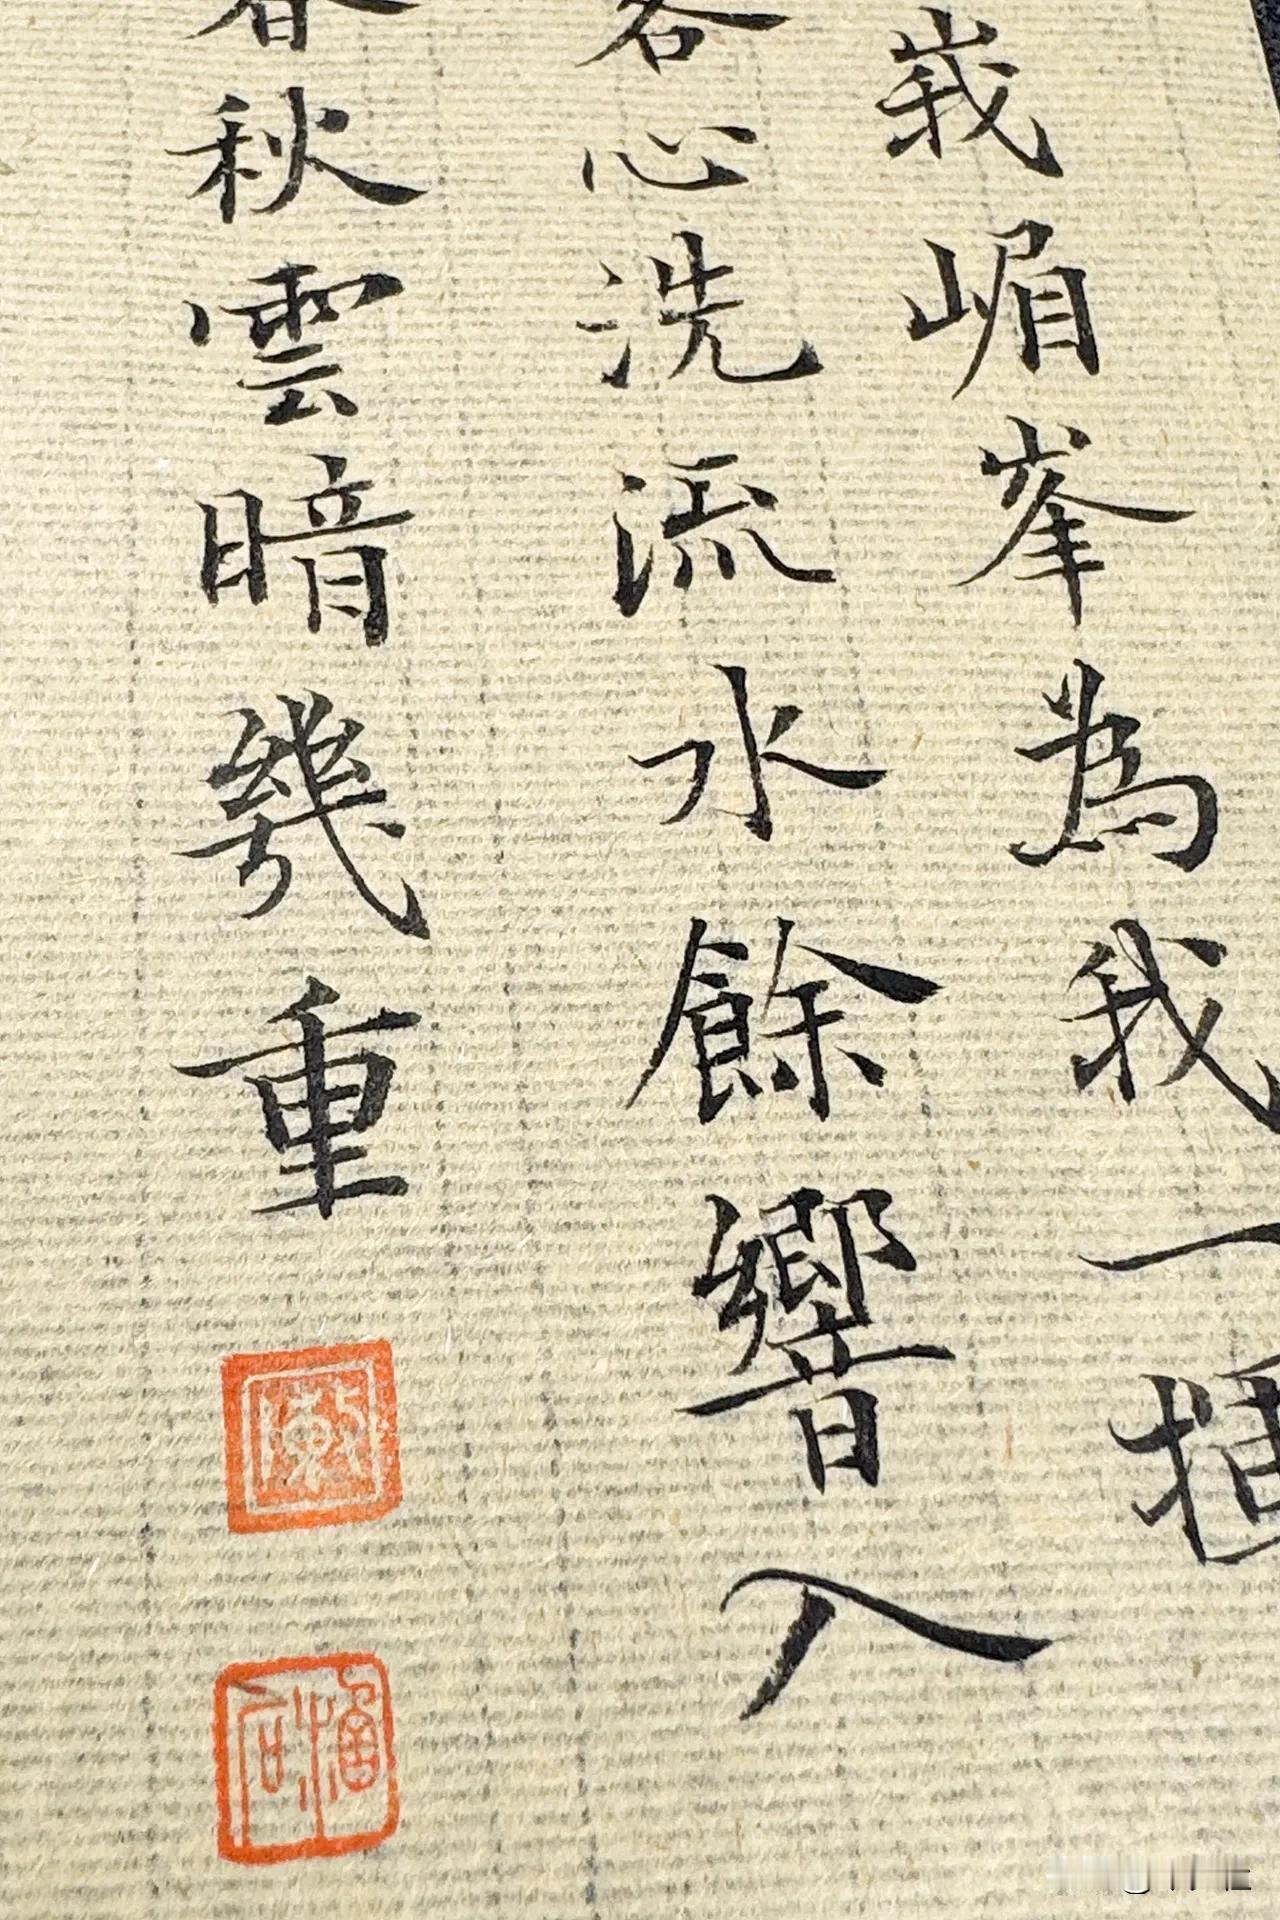 峩嵋峯為我一揮
客心洗流水餘響入
秋雲暗幾重